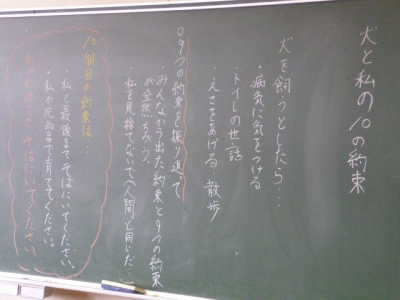 犬と私の10の約束
犬を飼うとしたら…
・病気に気をつける
・トイレの世話
・えさをあげる・散歩
○9つの約束を振り返って
・みんなから出た約束と9つの約束
が全然ちがう。
・私を見捨てないで(人間と同じだ)
10個目の約束は…
・私と最後までそばにいてください。
・私が死ぬまで育ててください。
そばにいてください